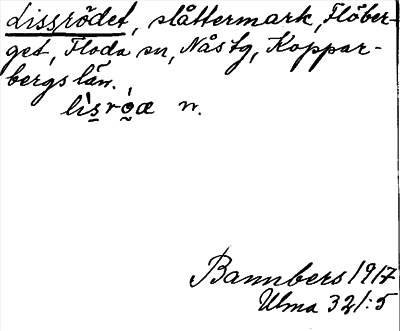 Lissrödet, slåttermark, Flöber-
get, Floda sn, Nås tg, Koppar-
bergs län.
lìs̱rọ́æ n.
Bannbers 1917
Ulma 321:5